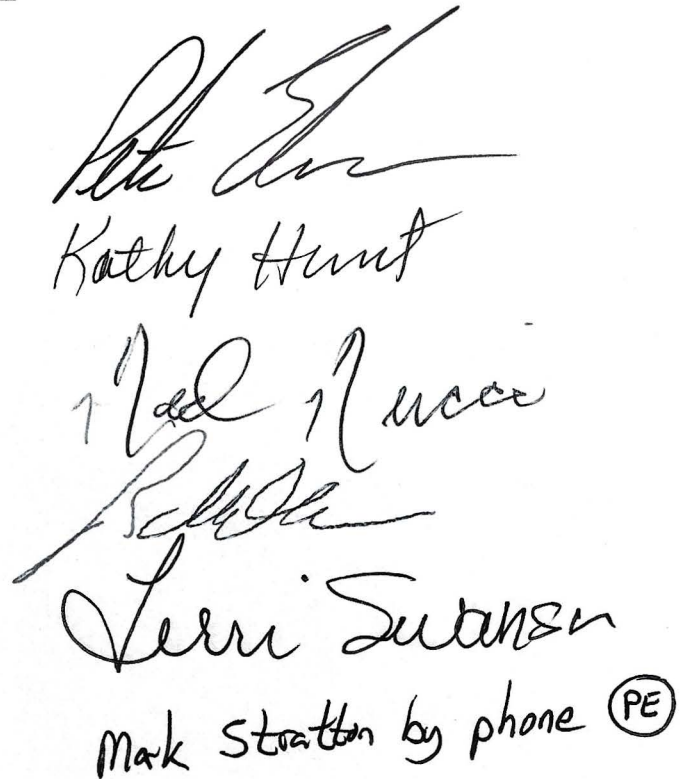 Pete
Kathy Hunt
Ned Nucci
Terri Swanson
Mark Stratton by phone PE